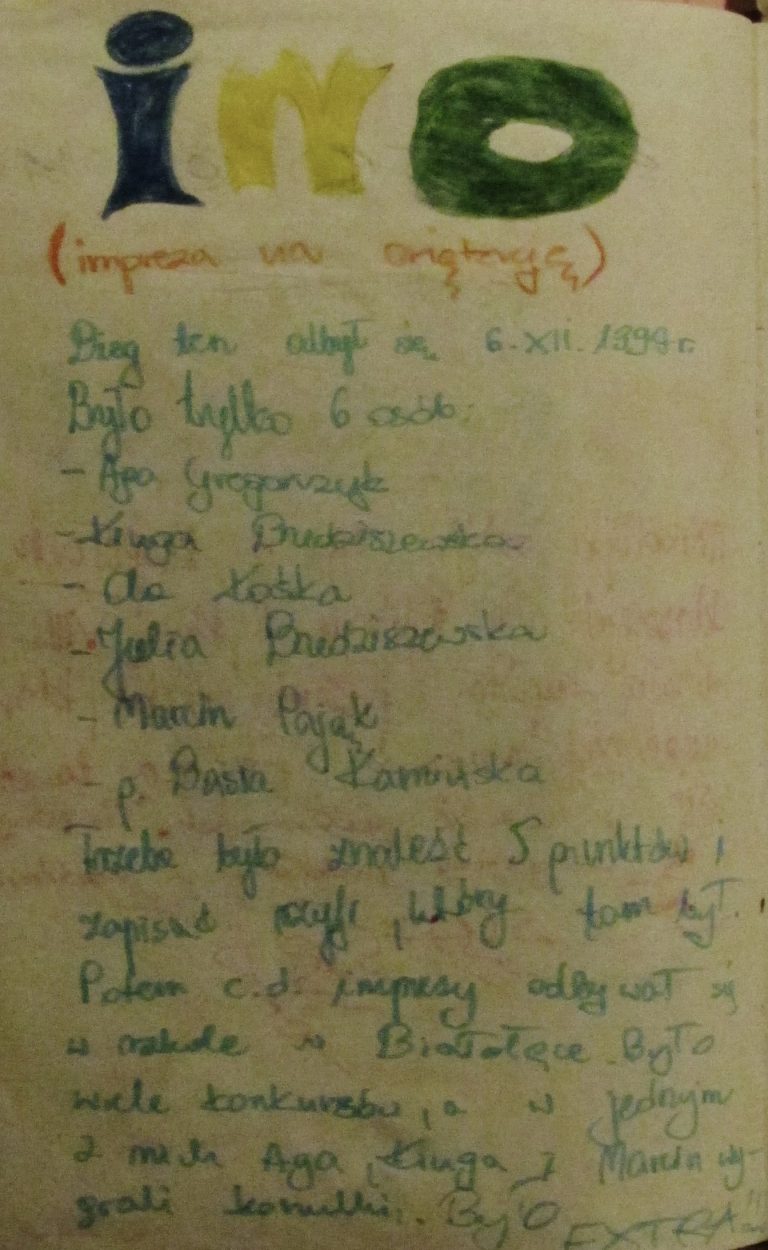 ino
(impreza na oriętację)
Bieg ten odbył się 6.XII.1998r.
Było tylko 6 osób:
- Aga Gregorczyk
- Kinga Brudziszewska
- Ola Kośka
- Julia Brudziszewska
- Marcin Pająk
- p. Basia Kamińska
Trzeba było znaleść 5 punktów i
zapisać szyfr, który tam był.
Potem c.d. imprezy odbywał się
w szkole w Białołęce. Było
wiele konkursów, a w jednym
z nich Aga, Kinga i Marcin wy-
grali koszulki. Było EXTRA!!